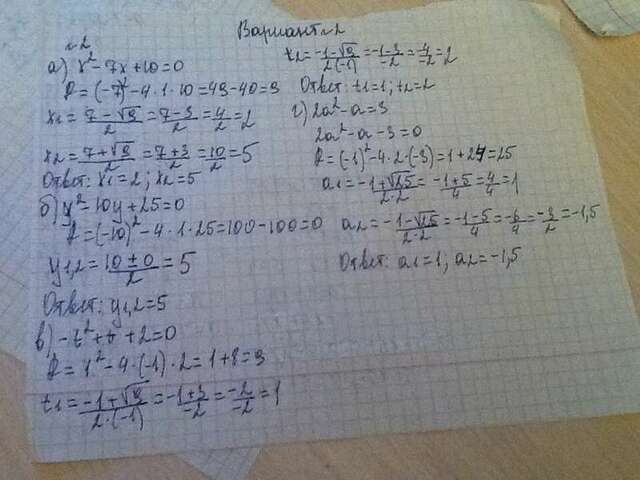 Вариант 2
№2
а) x² - 7x + 10 = 0
D = (-7)² - 4·1·10 = 49 - 40 = 9
x1 = (7 - √9)/2 = (7 - 3)/2 = 4/2 = 2
x2 = (7 + √9)/2 = (7 + 3)/2 = 10/2 = 5
Ответ: x1 = 2; x2 = 5
б) y² - 10y + 25 = 0
D = (-10)² - 4·1·25 = 100 - 100 = 0
y1,2 = (10 ± 0)/2 = 5
Ответ: y1,2 = 5
в) -t² + t + 2 = 0
D = 1² - 4·(-1)·2 = 1 + 8 = 9
t1 = (-1 + √9)/(2·(-1)) = (-1 + 3)/(-2) = (-2)/(-2) = 1
t2 = (-1 - √9)/(2·(-1)) = (-1 - 3)/(-2) = 4/(-2) = 2
Ответ: t1 = 1; t2 = 2
г) 2a² - a = 3
2a² - a - 3 = 0
D = (-1)² - 4·2·(-3) = 1 + 24 = 25
a1 = (-1 + √25)/(2·2) = (-1 + 5)/4 = 4/4 = 1
a2 = (-1 - √25)/(2·2) = (-1 - 5)/4 = -6/4 = -3/2 = -1,5
Ответ: a1 = 1; a2 = -1,5